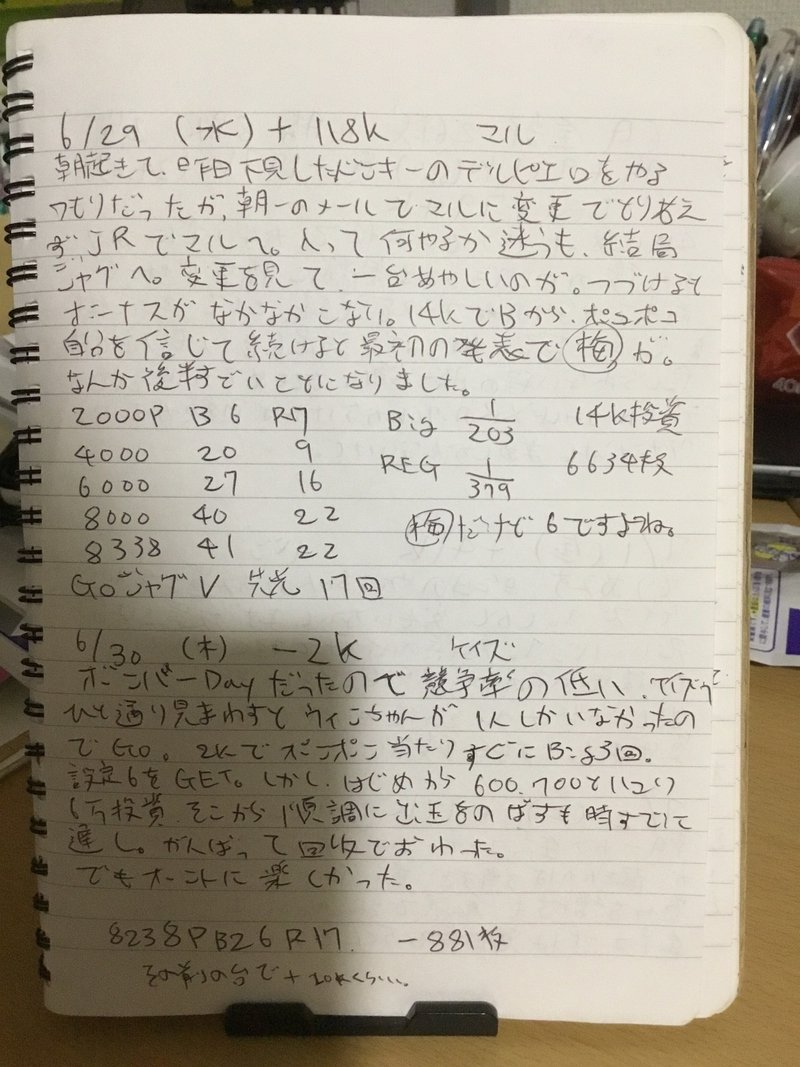 6/29 (水) + 118k マル
朝起きて、昨日下見したドンキーのデルピエロをやる
つもりだったが、朝一のメールでマルに変更でとり考え
ずJRでマルへ。入って何やるか迷うも、結局
ジャグへ。変更を見て、一台あやしいのが。つづけると
ボーナスがなかなかこない。14kでBから、ポコポコ
自分を信じて続けると最初の発表で(梅)が。
なんか後半すごいことになりました。
2000P B 6 R7 Big 1/203 14k投資
4000 20 9 REG 1/379 6634枚
6000 27 16
8000 40 22 (梅)だけど6ですよね。
8338 41 22
GoジャグV 先光 17回
6/30 (木) −2k ケイズ
ボンバーDayだったので競争率の低い、ケイズで
ひと通り見まわすとウィンちゃんが1人しかいなかったの
でGO。2kでポンポン当たりすぐにBig3回。
設定6をGET。しかし、はじめから600、700とハマり
6万投資、そこから順調に出玉をのばすも時すでに
遅し。がんばって回収でおわった。
でもホントに楽しかった。
8238P B26 R17. −881枚
その前の台で+20kくらい...